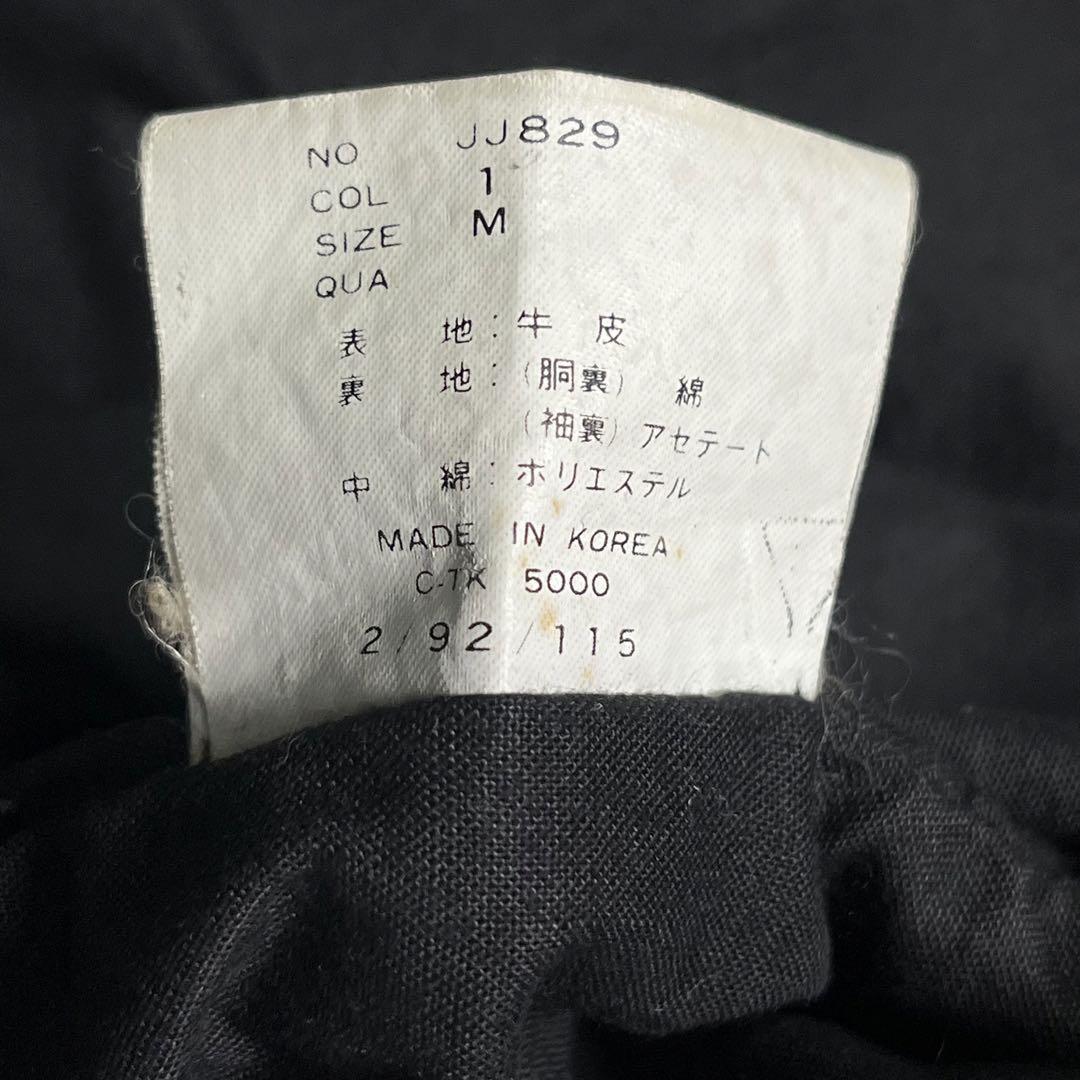 NO JJ829
COL 1
SIZE M
QUA
表 地：牛 皮
裏 地：(胴裏) 綿
(袖裏) アセテート
中 綿：ポリエステル
MADE IN KOREA
C-TK 5000
2/92/115